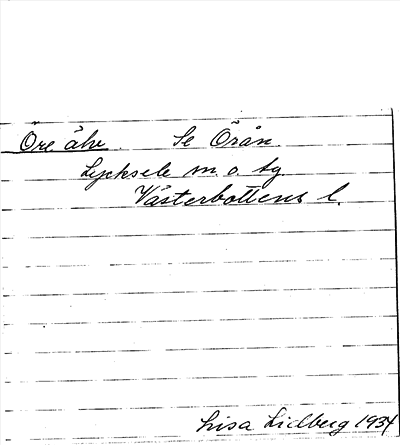 Öre älv. Se Örån.
Lycksele m. o. tg.
Västerbottens l.
Lisa Lidberg 1934